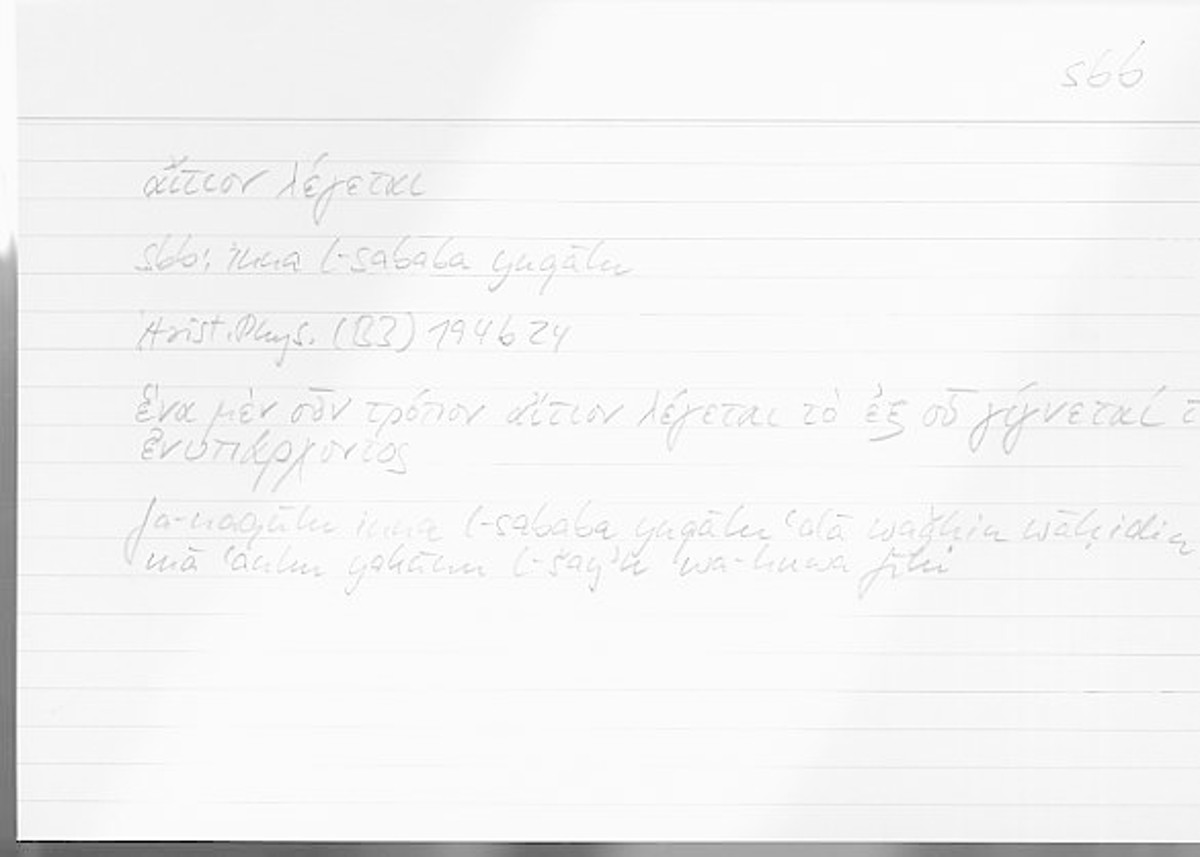 sbb
αἴτιον λέγεται
sbb: inna l-sababa yuqālu
Arist. Phys. (B3) 194b24
ἕνα μὲν οὖν τρόπον αἴτιον λέγεται τὸ ἐξ οὗ γίγνεταί τ
ἐνυπάρχοντος
fa-naqūlu inna l-sababa yuqālu ʿalā waǧhin wāḥidin
mā ʿanhu yakūnu l-šayʾu wa-huwa fīhi